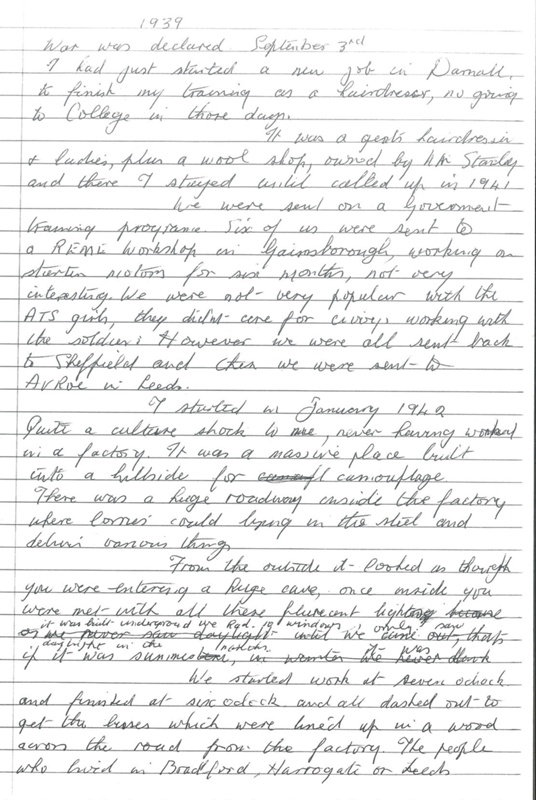 1939
War was declared September 3rd
I had just started a new job in Darnall,
to finish my training as a hairdresser, no going
to College in those days.
It was a gents hairdresser
& ladies, plus a wool shop, owned by Mr Stanley
and there I stayed until called up in 1941
We were sent on a Government
training programe. Six of us were sent to
a REME Workshop in Gainsborough, working on
starter motors for six months, not very
interesting. We were not very popular with the
ATS girls, they didn't care for civvys working with
the soldiers However we were all sent back
to Sheffield and then we were sent to
AVRoe in Leeds.
I started in January 1942
Quite a culture shock to me, never having worked
in a factory. It was a massive place built
into a hillside for camouflage.
There was a huge roadway inside the factory
where lorries could bring in the steel and
deliver various things
From the outside it looked as though
you were entering a huge cave, once inside you
were met with all these flurecent lighting because
it was built underground we had no windows, only saw
as we never saw daylight until we came out, thats
daylight in the
if it was summer, in winter it was dark
We started work at seven oclock
and finished at six oclock and all dashed out to
get the busses which were lined up in a wood
across the road from the factory. The people
who lived in Bradford, Harrogate or Leeds